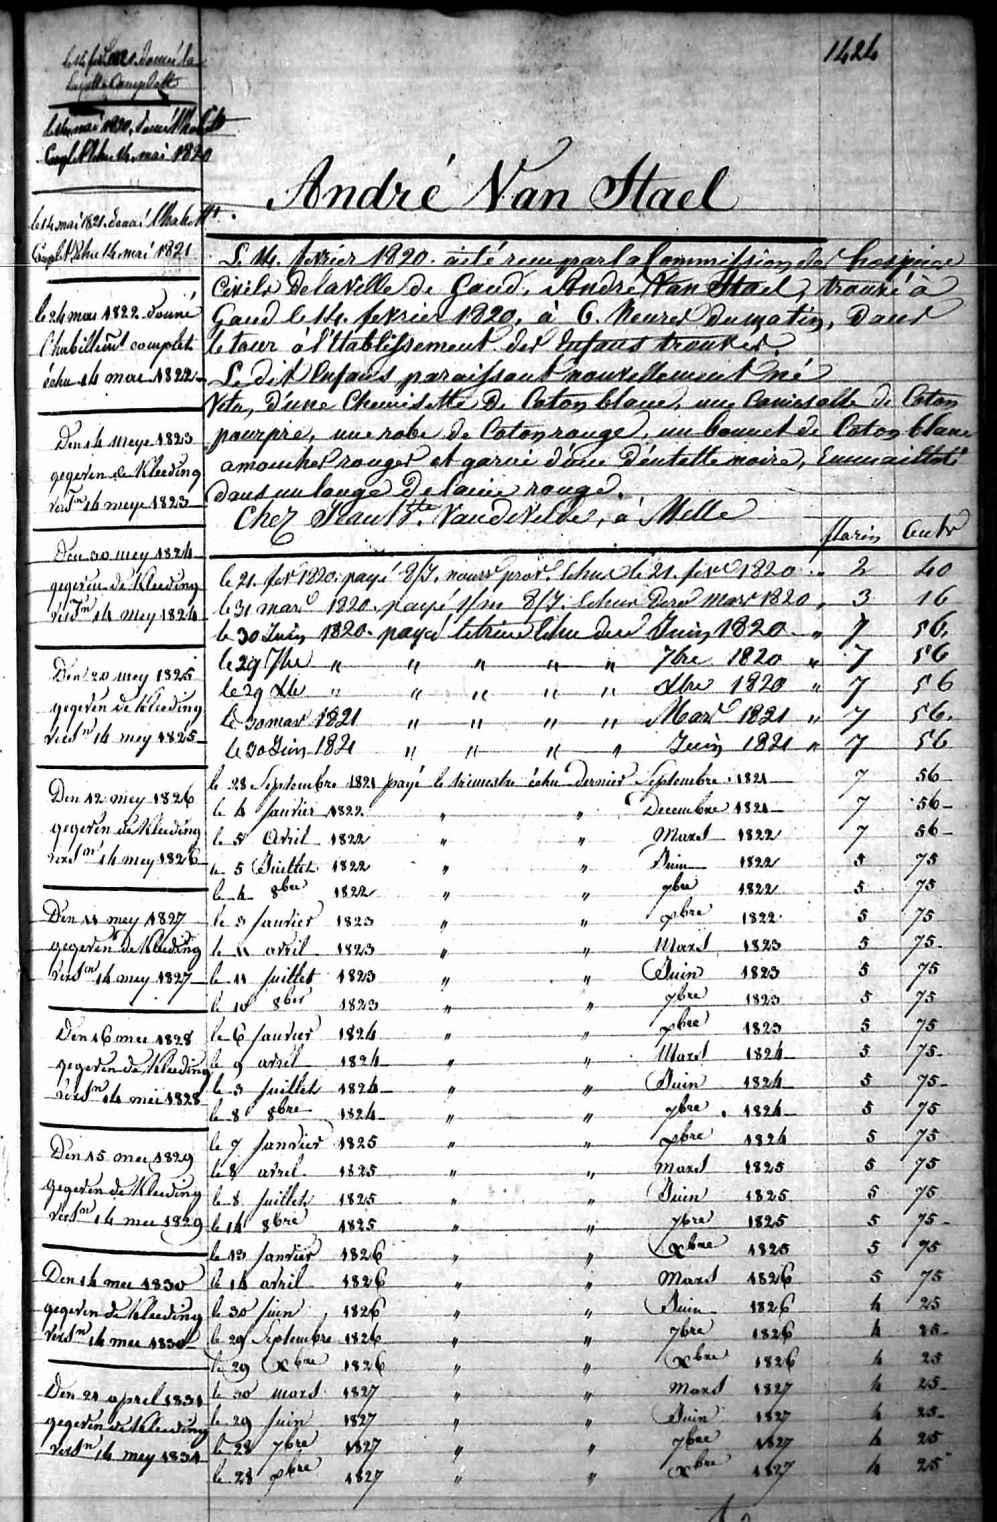 1424
le 14 fevr 1820. donné la
layette complette
le 14 mai 1820, donné l'habilt
Complet échu 14 mai 1820
le 14 mai 1821. donné l'habillt.
Complet échu 14 mai 1821
le 24 mai 1822. donné
l'habillemt complet
échu 14 mai 1822
Den 14 meye 1823
gegeven de Kleeding
versn 14 meye 1823
Den 30 mey 1824
gegeven de Kleeding
versn 14 mey 1824
Den 20 mey 1825
gegeven de Kleeding
versn 14 mey 1825
Den 12 mey 1826
gegeven de Kleeding
versn 14 mey 1826
Den 11 mey 1827
gegeven de Kleeding
versn 14 mey 1827
Den 16 mei 1828
gegeven de Kleeding
versn 14 mei 1828
Den 15 mei 1829
gegeven de Kleeding
versn 14 mei 1829
Den 14 mei 1830
gegeven de Kleeding
versn 14 mei 1830
Den 21 april 1831
gegeven de Kleeding
versn 14 mey 1831
André Van Stael
Le 14. fevrier 1820. a été reçu par la Commission des hospices
Civils de la Ville de Gand, André Van Stael, trouvé à
Gand le 14. fevrier 1820, à 6. heures du matin, dans
le tour à l'établissement des Enfans trouvés.
Le dit Enfans paraissant nouvellement né
Vetu, d'une Chemisette de Coton blanc, une Camisolle de Coton
pourpre, une robe de Coton rouge, un bonnet de Coton blanc
a mouches rouges et garni d'une déntelle noire, Emmailloté
dans un lange de laine rouge.
Chez Jean Bte. Vande Velde, à Melle
florin Cents
le 21. fevr 1820. payé 8/J. nourr prov. échue le 21. fevr 1820 " 2 40
le 31 mars 1820. payé 1/m 8/J. échus Derr Mars 1820 " 3 16
le 30 Juin 1820. payé letrime Echu derr Juin 1820 " 7 56.
le 29 7bre " " " " " 7bre 1820 " 7 56
le 29 Xbre " " " " " Xbre 1820 " 7 56
le 30 mars 1821 " " " " Mars 1821 " 7 56.
le 30 Juin 1821 " " " " Juin 1821 " 7 56
le 28 Septembre 1821 payé le trimestre échu dernier Septembre 1821 7 56
le 4 Janvier 1822 " " Decembre 1821 7 56
le 5 Avril 1822 " " Mars 1822 7 56
le 5 Juillet 1822 " " Juin 1822 5 75
le 4 8bre 1822 " " 7bre 1822 5 75
le 3 Janvier 1823 " " xbre 1822 5 75
le 11 avril 1823 " " Mars 1823 5 75
le 11 Juillet 1823 " " Juin 1823 5 75
le 10 8bre 1823 " " 7bre 1823 5 75
le 6 Janvier 1824 " " xbre 1823 5 75
le 9 avril 1824 " " Mars 1824 5 75
le 3 Juillet 1824 " " Juin 1824 5 75
le 8 8bre 1824 " " 7bre 1824 5 75
le 7 Janvier 1825 " " xbre 1824 5 75
le 8 avril 1825 " " Mars 1825 5 75
le 8 Juillet 1825 " " Juin 1825 5 75
le 14 8bre 1825 " " 7bre 1825 5 75
le 13 Janvier 1826 " " xbre 1825 5 75
le 14 avril 1826 " " Mars 1826 5 75
le 30 Juin 1826 " " Juin 1826 4 25
le 29 Septembre 1826 " " 7bre 1826 4 25
le 29 xbre 1826 " " xbre 1826 4 25
le 30 mars 1827 " " Mars 1827 4 25
le 29 Juin 1827 " " Juin 1827 4 25
le 28 7bre 1827 " " 7bre 1827 4 25
le 28 xbre 1827 " " xbre 1827 4 25